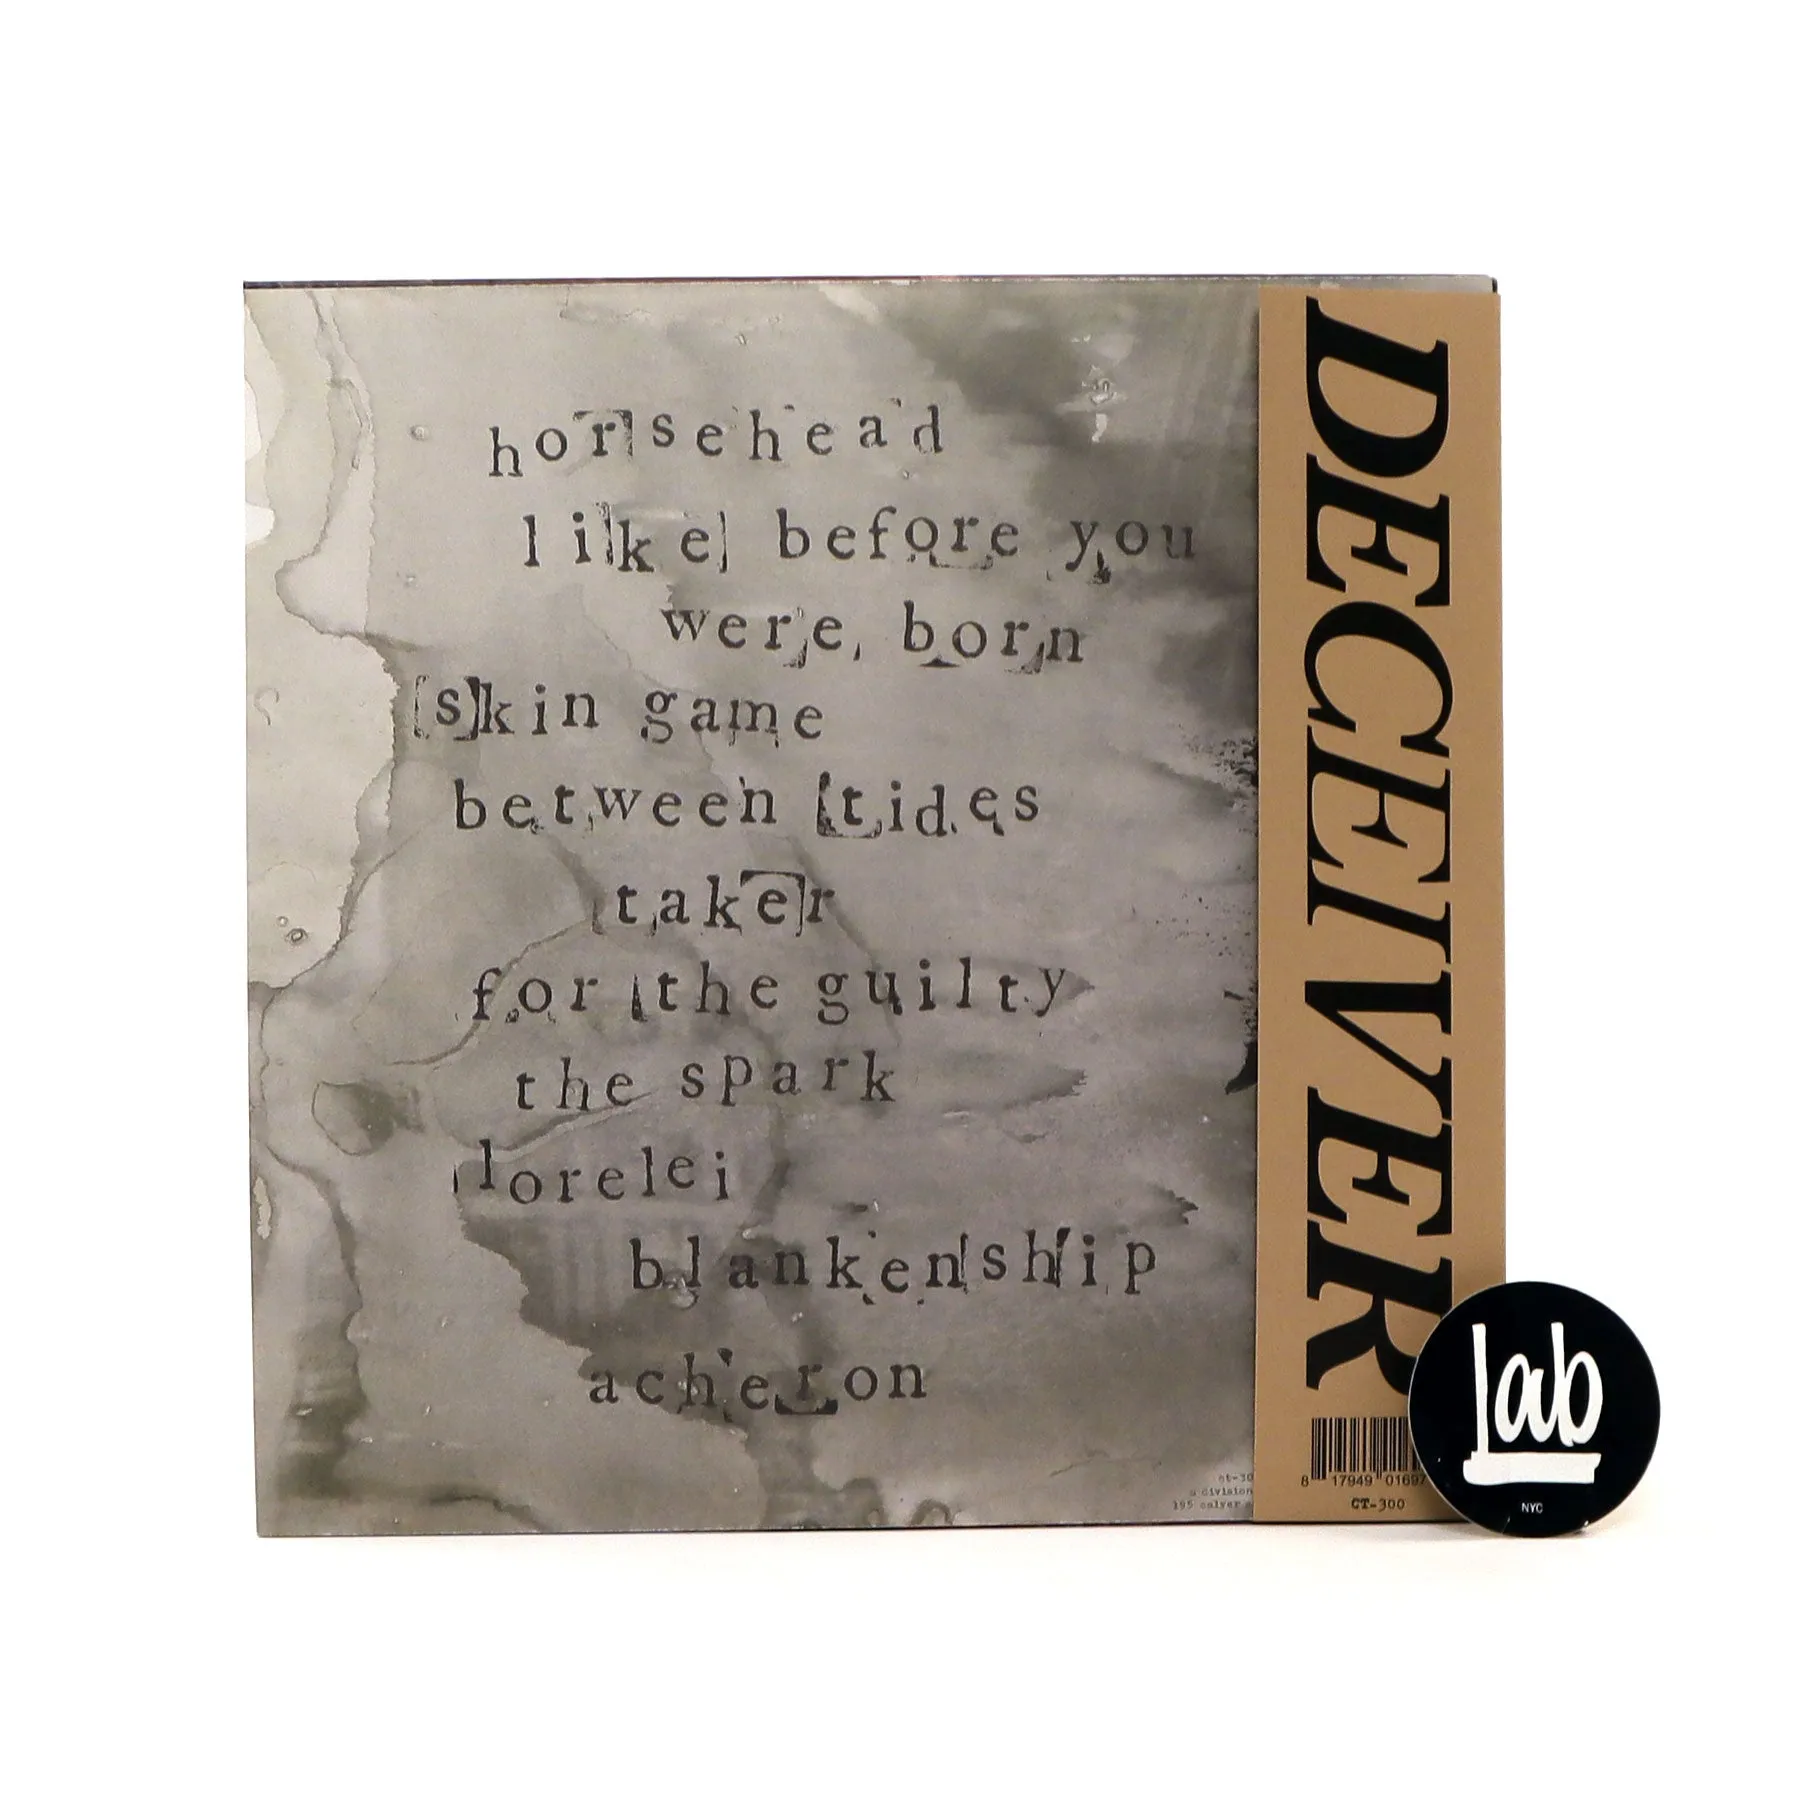 horsehead
like before you
were born
skin game
between tides
taker
for the guilty
the spark
lorelei
blankenship
acheron
DECEIVER
8 17949 01697
CT-300
ct-30
a division
195 calyer
Lab
NYC